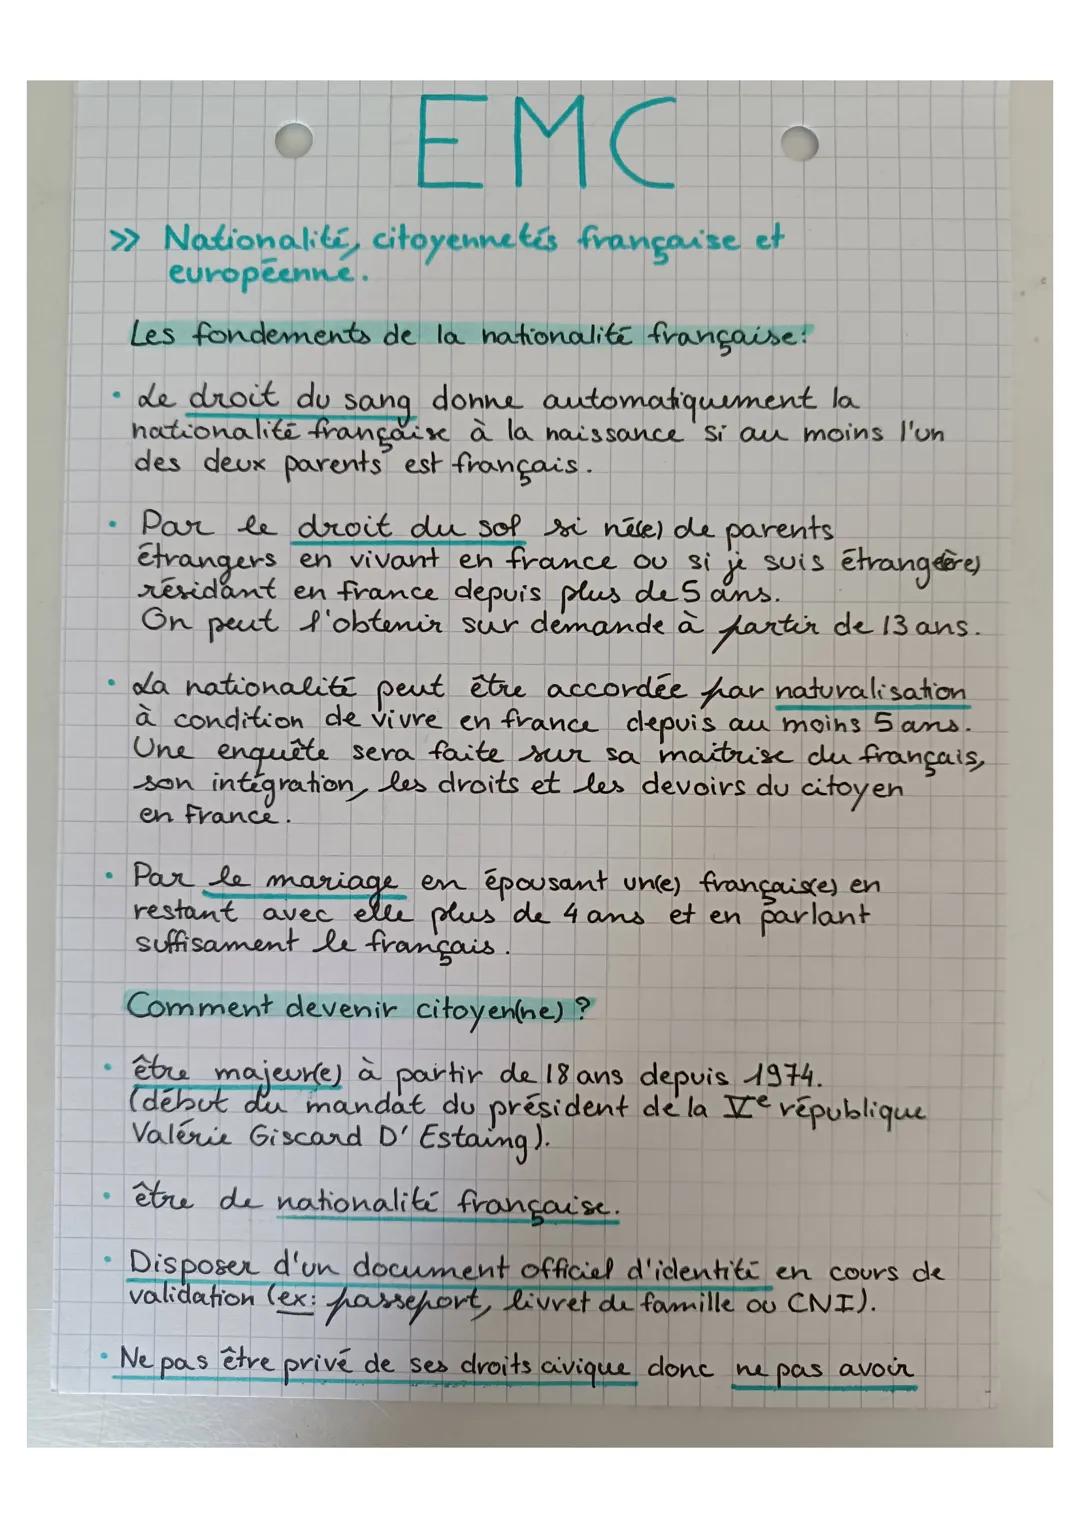 EMC
>> Nationalité, citoyennetés française et
européenne.
Les fondements de la nationalité française:
• Le droit du sang donne automatiquement la
nationalité française à la naissance si au moins l'un
des deux parents est français.
• Par le droit du sol si né(e) de parents
étrangers en vivant en france ou si je suis étrang(ère)
résidant en france depuis plus de 5 ans.
On peut l'obtenir sur demande à partir de 13 ans.
• La nationalité peut être accordée par naturalisation
à condition de vivre en france depuis au moins 5 ans.
Une enquête sera faite sur sa maitrise du français,
son intégration, les droits et les devoirs du citoyen
en France.
• Par le mariage en épousant un(e) français(e) en
restant avec elle plus de 4 ans et en parlant
suffisament le français.
Comment devenir citoyen(ne) ?
• être majeur(e) à partir de 18 ans depuis 1974.
(début du mandat du président de la Ve république
Valérie Giscard D'Estaing).
• être de nationalité française.
• Disposer d'un document officiel d'identité en cours de
validation (ex: passeport, livret de famille ou CNI).
• Ne pas être privé de ses droits civique donc ne pas avoir